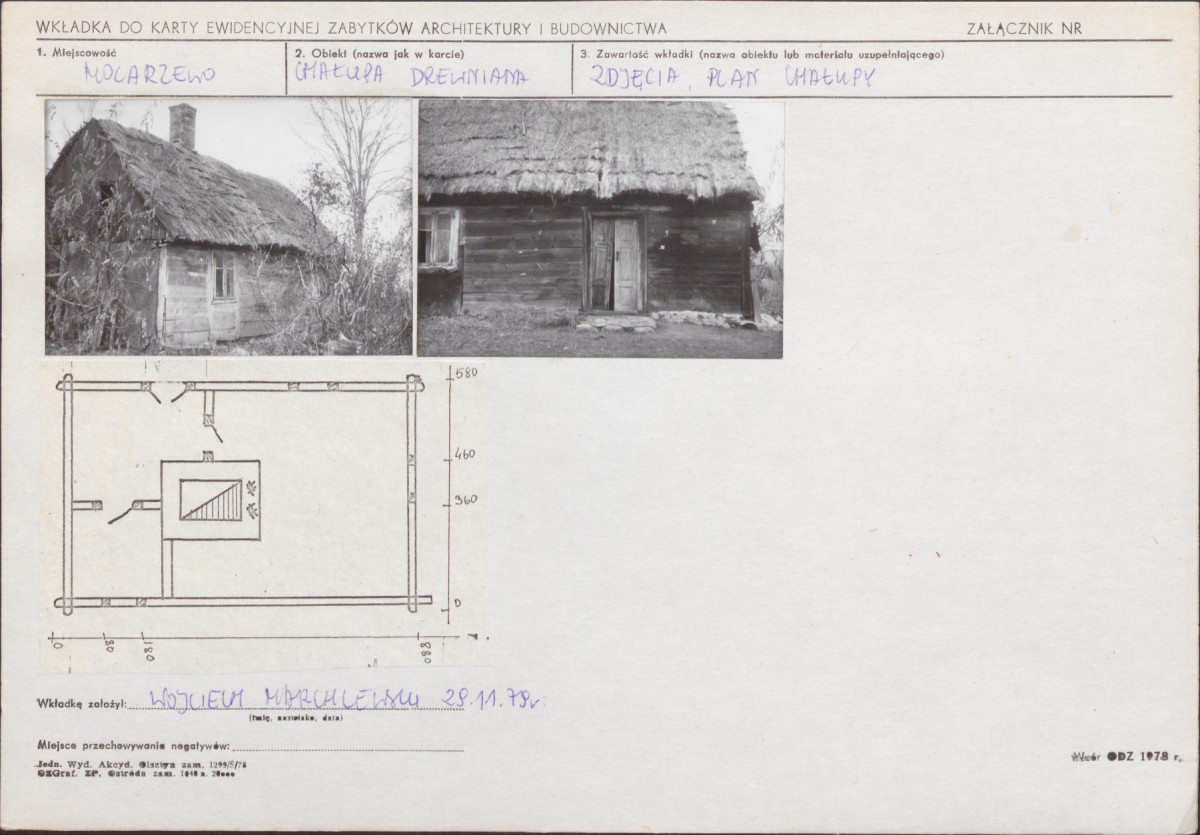 WKŁADKA DO KARTY EWIDENCYJNEJ ZABYTKÓW ARCHITEKTURY I BUDOWNICTWA
ZAŁĄCZNIK NR
1. Miejscowość
MOCARZEWO
2. Obiekt (nazwa jak w karcie)
CHAŁUPA DREWNIANA
3. Zawartość wkładki (nazwa obiektu lub materiału uzupełniającego)
ZDJĘCIA, PLAN CHAŁUPY
580
460
360
0
0
80
180
880
Wkładkę założył: WOJCIECH MARCHLEWSKI 29.11.79r
(imię, nazwisko, data)
Miejsce przechowywania negatywów:
Jedn. Wyd. Akcyd. Olsztyn zam. 1299/S/78
OZGraf. ZP. Ostróda zam. 1040 n. 20000
Wzór ODZ 1978 r.